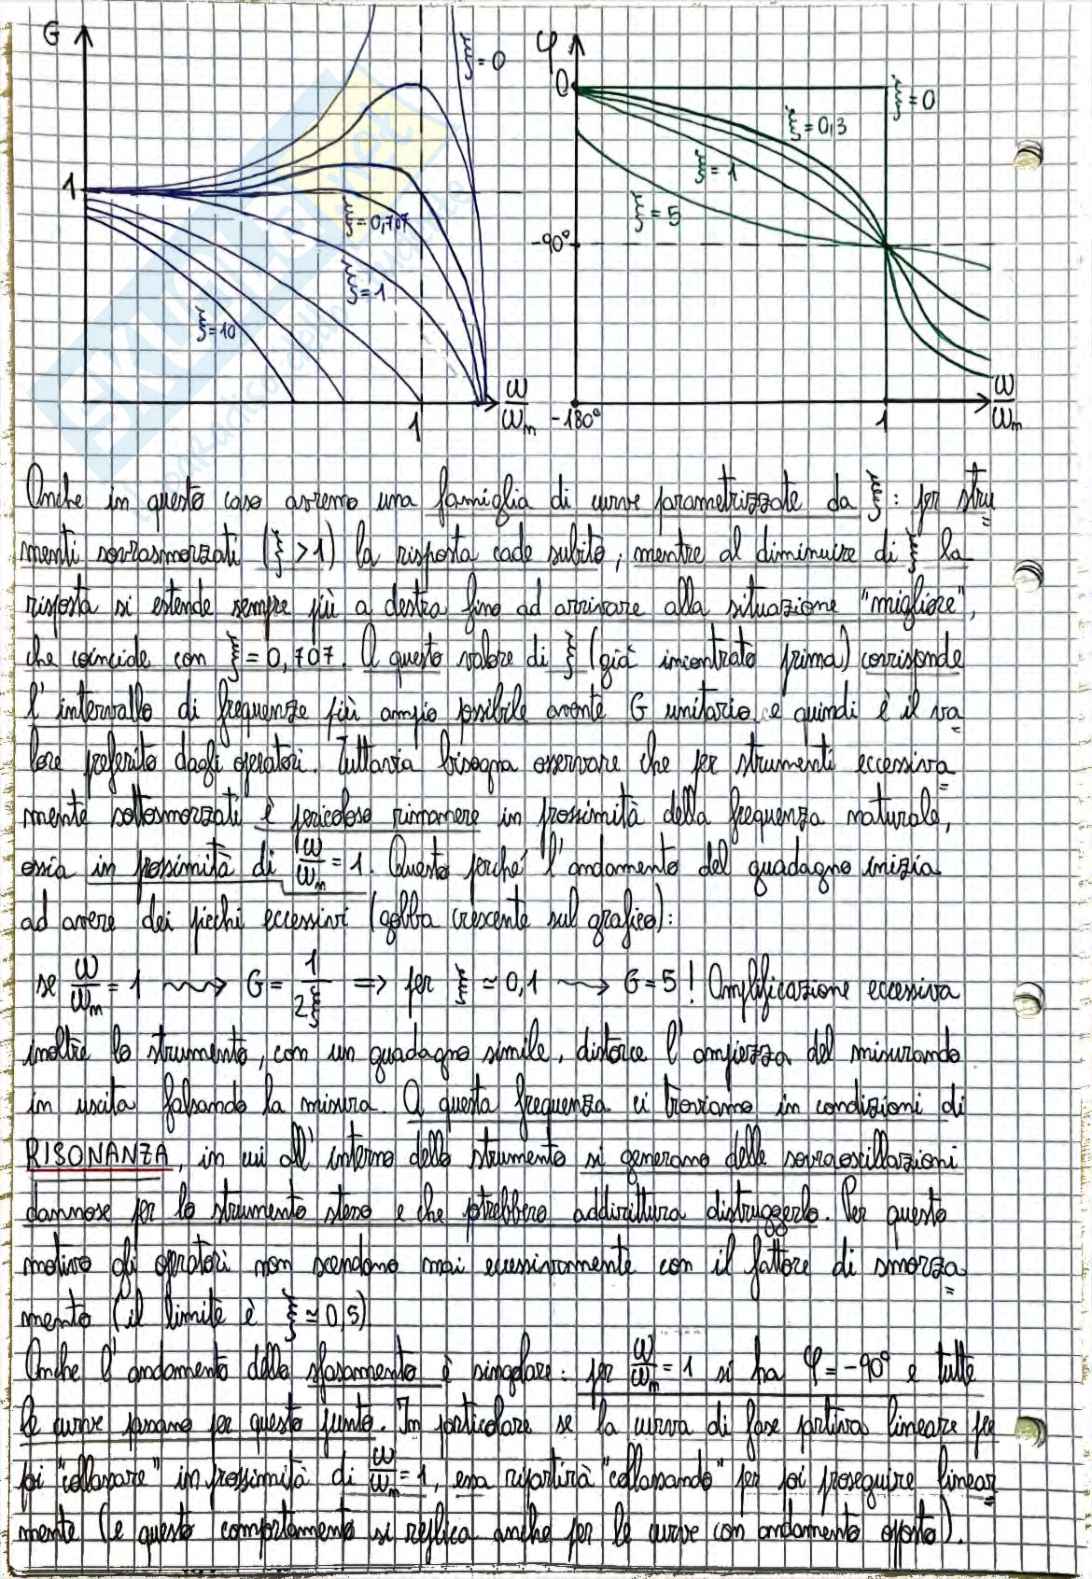 G
ξ=0
1
ξ=0,707
ξ=1
ξ=10
1
ω/ωₙ
φ
0
ξ=0
ξ=0,3
ξ=1
ξ=5
-90°
-180°
1
ω/ωₙ
Anche in questo caso avremo una famiglia di curve parametrizzate da ξ: per stru
menti sovrasmorzati (ξ>1) la risposta cade subito, mentre al diminuire di ξ la
risposta si estende sempre più a destra fino ad arrivare alla situazione "migliore",
che coincide con ξ=0,707. A questo valore di ξ (già incontrato prima) corrisponde
l'intervallo di frequenze più ampio possibile avente G unitario e quindi è il va
lore preferito dagli operatori. Tuttavia bisogna osservare che per strumenti eccessiva
mente sottosmorzati è pericoloso rimanere in prossimità della frequenza naturale,
ossia in prossimità di ω/ωₙ=1. Questo perché l'andamento del guadagno inizia
ad avere dei picchi eccessivi (gobba crescente sul grafico):
se ω/ωₙ=1 ⇝ G=1/2ξ ⇒ per ξ≃0,1 ⇝ G=5! Amplificazione eccessiva
inoltre lo strumento, con un guadagno simile, distorce l'ampiezza del misurando
in uscita falsando la misura. A questa frequenza ci troviamo in condizioni di
RISONANZA, in cui all'interno dello strumento si generano delle sovraoscillazioni
dannose per lo strumento stesso e che potrebbero addirittura distruggerlo. Per questo
motivo gli operatori non scendono mai eccessivamente con il fattore di smorza
mento (il limite è ξ≃0,5)
Anche l'andamento dello sfasamento è singolare: per ω/ωₙ=1 si ha φ=-90° e tutte
le curve passano per questo punto. In particolare se la curva di fase partiva lineare per
poi "collassare" in prossimità di ω/ωₙ=1, essa ripartirà "collassando" per poi proseguire linear
mente (e questo comportamento si replica anche per le curve con andamento opposto).